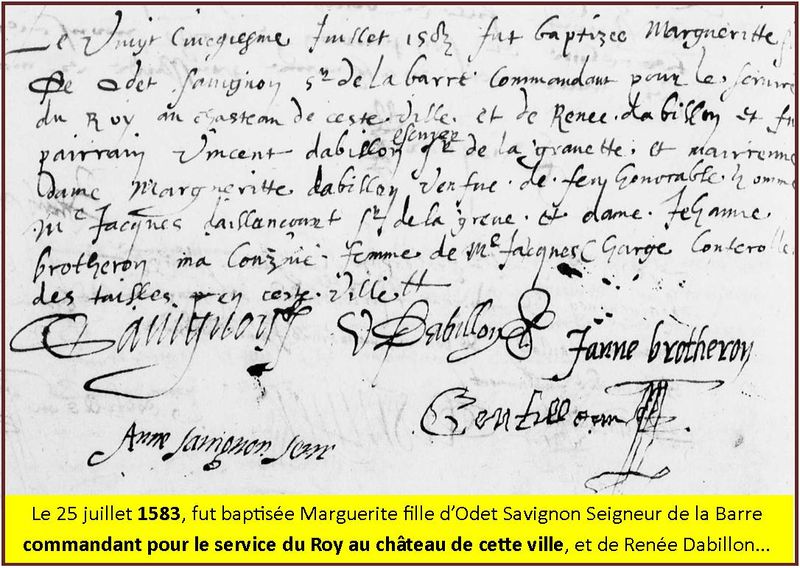 Le Vingt Cincqiesme Juillet 1583 fut baptizee Margueritte
De Odet Savignon Sr de la barre Commandant pour le service
du Roy au chasteau de ceste ville et de Renee dabillon et fu
pairrain Vincent dabillon escuyer Sr de la gravette et mairenne
Dame Margueritte dabillon veufve de feu honorable homme
Me Jacques daillencourt Sr de la greve et dame Jehanne
brotheron ma femme de Me Jacques Charge Conterolle
des tailles en ceste ville
Savignon VDabillon Janne brotheron
Anne Savignon
Le 25 juillet 1583, fut baptisée Marguerite fille d’Odet Savignon Seigneur de la Barre
commandant pour le service du Roy au château de cette ville, et de Renée Dabillon...